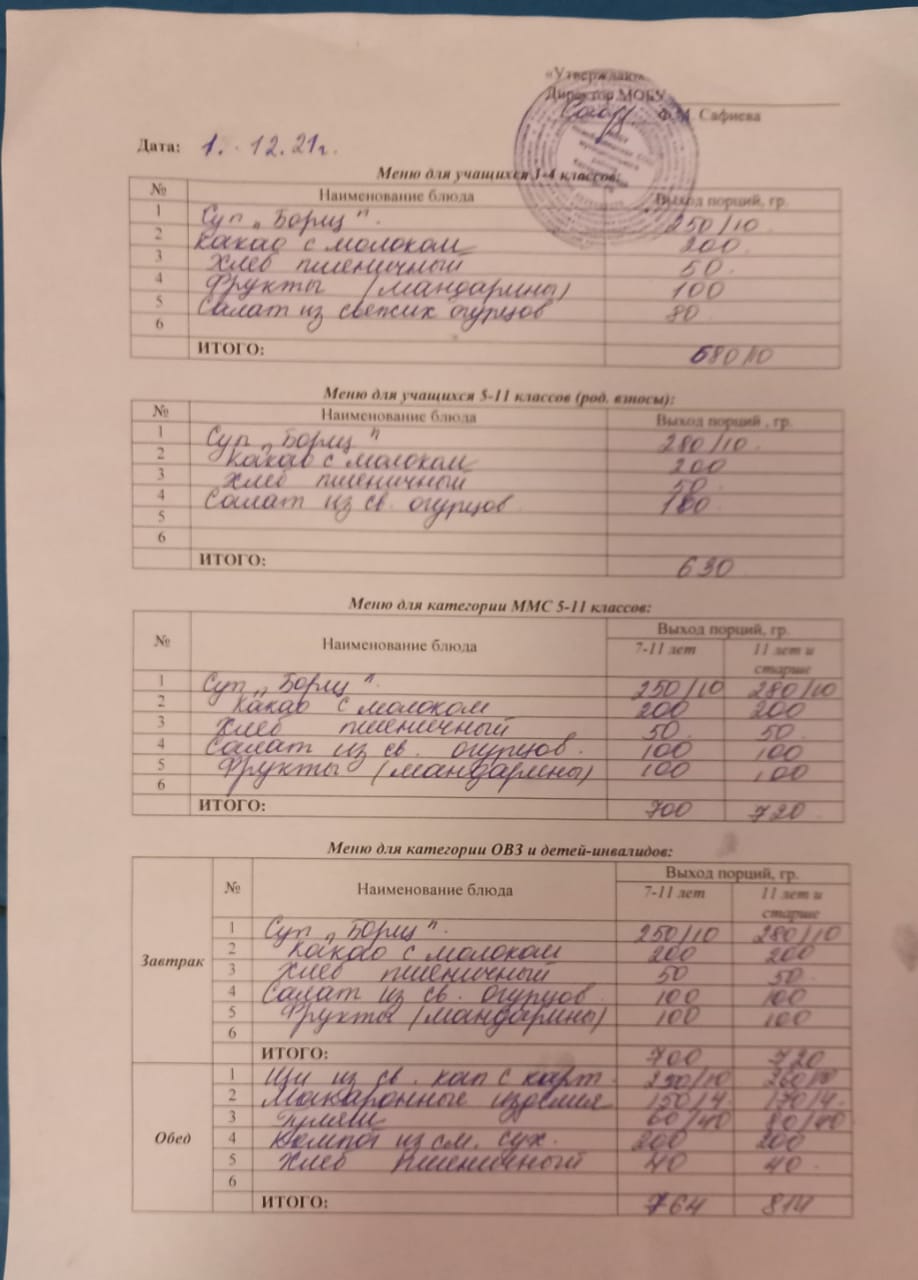 «Утверждаю»
Директор МОБУ
Ф.М. Сафиева
Дата: 1. 12.21г.
Меню для учащихся 1-4 классов:
№ Наименование блюда Выход порций, гр.
1 Суп „Борщ" 250/10
2 Какао с молоком 200
3 Хлеб пшеничный 50
4 Фрукты (мандарины) 100
5 Салат из свежих огурцов 80
6
ИТОГО: 680/10
Меню для учащихся 5-11 классов (род. взносы):
№ Наименование блюда Выход порций , гр.
1 Суп „Борщ" 280/10
2 Какао с молоком 200
3 Хлеб пшеничный 50
4 Салат из св. огурцов 100
5
6
ИТОГО: 630
Меню для категории ММС 5-11 классов:
№ Наименование блюда Выход порций, гр.
7-11 лет 11 лет и старше
1 Суп „Борщ" 250/10 280/10
2 Какао с молоком 200 200
3 Хлеб пшеничный 50 50
4 Салат из св. огурцов 100 100
5 Фрукты (мандарины) 100 100
6
ИТОГО: 700 720
Меню для категории ОВЗ и детей-инвалидов:
№ Наименование блюда Выход порций, гр.
7-11 лет 11 лет и старше
Завтрак
1 Суп „Борщ" 250/10 280/10
2 Какао с молоком 200 200
3 Хлеб пшеничный 50 50
4 Салат из св. огурцов 100 100
5 Фрукты (мандарины) 100 100
6
ИТОГО: 700 720
Обед
1 Щи из св. кап с карт 250/10 260/10
2 Макаронные изделия 150/4 170/4
3 гуляш 60/40 80/40
4 Компот из см. сух. 200 200
5 Хлеб пшеничный 40 40
6
ИТОГО: 764 814